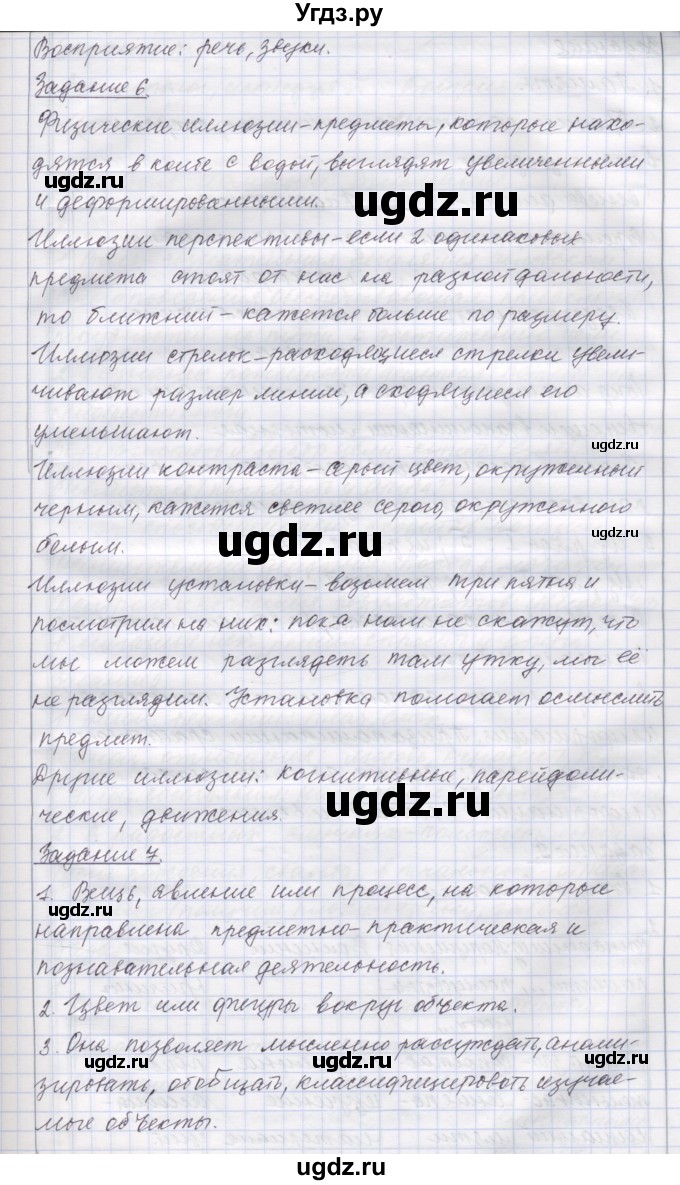 Угдз.ру
Восприятие: речь, звуки.
Задание 6
Физические иллюзии-предметы, которые нахо-
дятся в колбе с водой, выглядят увеличенными
ugdz.ru
и деформированными.
ugdz.ru
Иллюзии перспективы-если 2 одинаковых
предмета стоят от нас на разной дальности,
то ближний-кажется больше по размеру.
Иллюзии стрелок-расходящиеся стрелки увели-
чивают размер линии, а сходящиеся его
уменьшают.
ugdz.ru
Иллюзии контраста-серый цвет, окруженный
черным, кажется светлее серого, окруженного
ugdz.ru
белым.
ugdz.ru
Иллюзии установки-возьмем три пятна и
посмотрим на них: пока нам не скажут, что
мы можем разглядеть там утку, мы её
не разглядим. Установка помогает осмыслить
предмет.
Другие иллюзии: когнитивные, парейдоли-
ческие, движения.
ugdz.ru
Задание 7.
1. Вещь, явление или процесс, на которые
ugdz.ru
направлена предметно-практическая и
познавательная деятельность.
2. Цвет или фигуры вокруг объекта.
3. Она позволяет мысленно рассуждать, анали-
ugdz.ru ugdz.ru ugdz.ru
зировать, обобщать, классифицировать изучае-
мые объекты.
ugdz.ru
ugdz.ru